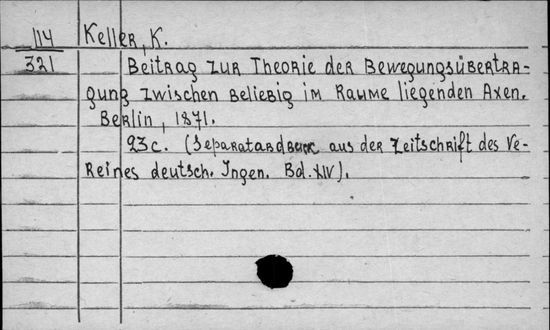 114 Keller, K.
321 Beitrag zur Theorie der Bewegungsübertra-
gung zwischen beliebig im Raume liegenden Axen.
Berlin, 1871.
23c. (Separatabdruck aus der Zeitschrift des Ve-
reines deutsch. Ingen. Bd. XIV).